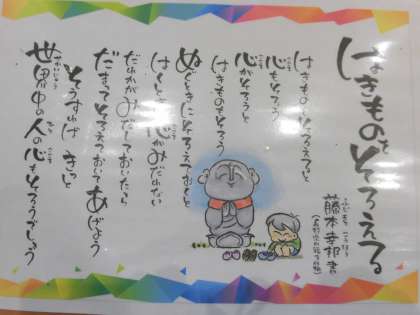 はきものをそろえる
藤本幸邦書
はきものをそろえると
心もそろう
心がそろうと
はきものもそろう
ぬぐときにそろえておくと
はくときに心がみだれない
だれかがみだしておいたら
だまってそろえておいてあげよう
そうすればきっと
世界中の人の心もそろうでしょう